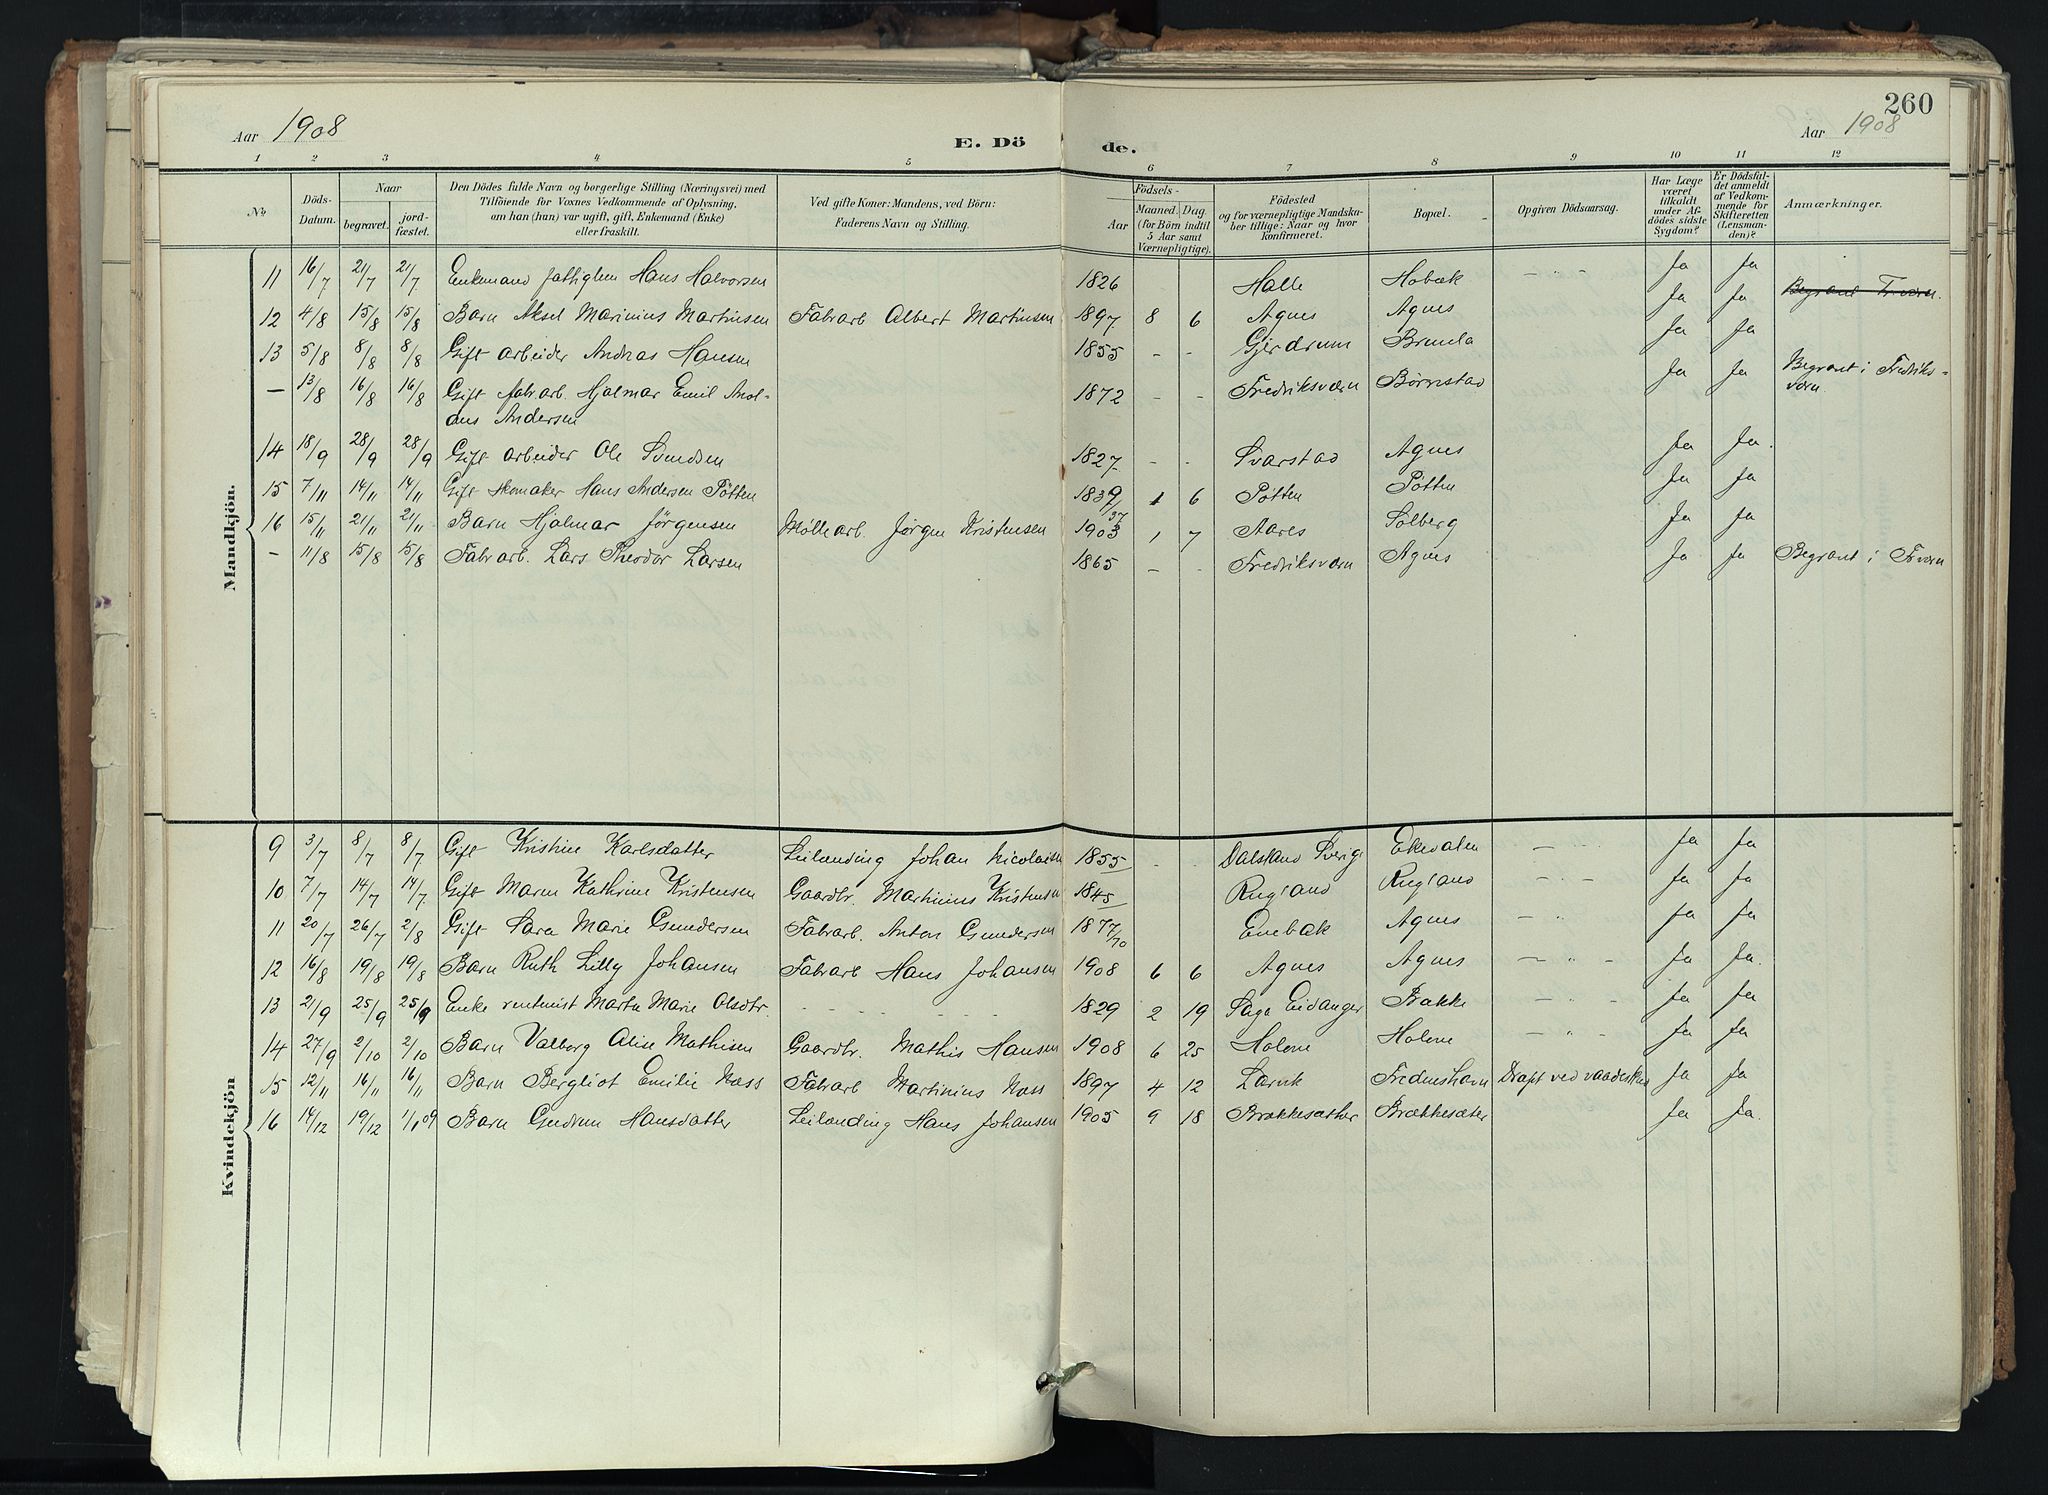 260
Aar 1908 E. Dö de. Aar 1908
1 2 3 4 5 6 7 8 9 10 11 12
No
Döds-Datum.
Naar
begravet.
jord-fæstet.
Den Dödes fulde Navn og borgerlige Stilling (Næringsvei) med
Tilföiende for Voxnes Vedkommende af Oplysning.
om han (hun) var ugift, gift, Enkemand (Enke)
eller fraskilt.
Ved gifte Koner: Mandens, ved Börn:
Faderens Navn og Stilling.
Födsels-
Aar
Maaned. Dag.
(for Börn indtil
5 Aar samt
Værnepligtige).
Födested
og for værnepligtige Mandska-
ber tillige: Naar og hvor
konfirmeret.
Bopæl.
Opgiven Dödsaarsag.
Har Læge
været
tilkaldt
under Af-
dödes sidste
Sygdom?
Er Dödsfal-
det anmeldt
af Vedkom-
mende for
Skifteretten
(Lensman-
den)?
Anmærkninger.
Mandkjön.
11 16/7 21/7 21/7 Enkemand fattiglem Hans Halvorsen 1826 Halle Hobæk - " - Ja Ja Begravet Fr.værn.
12 4/8 15/8 15/8 Barn Aksel Marinius Martinsen Fabrarb Albert Martinsen 1897 8 6 Agnes Agnes Ja Ja
13 5/8 8/8 8/8 Gift arbeider Andreas Hansen 1855 - - Gjerdrum Brunla Ja Ja
- 13/8 16/8 16/8 Gift fabr.arb. Hjalmar Emil Anol- 1872 - - Fredriksværn Børrestad Ja Ja Begravet i Fredriks-
dus Andersen værn.
14 18/9 28/9 28/9 Gift arbeider Ole Svendsen 1827 - - Svarstad Agnes Ja Ja.
15 7/11 14/11 14/11 Gift skomaker Hans Andersen Pøtten 1839/37 1 6 Pøtten Pøtten Ja Ja
16 15/11 21/11 21/11 Barn Hjalmar Jørgensen Møllearb. Jørgen Kristensen 1903 1 7 Aares Solberg Ja Ja
- 11/8 15/8 15/8 Fabrarb. Lars Theodor Larsen 1865 - - Fredriksværn Agnes Ja Ja Begravet i Fr.værn
Kvindekjön
9 3/7 8/7 8/7 Gift Kristine Karlsdatter Leilænding Johan Nicolaisen 1855 - - Dalsland Sverige Ekevalen - " - Ja Ja
10 7/7 14/7 14/7 Gift Maren Kathrine Kristensen Gaardbr. Martinius Kristensen 1845 Rugland Rugland - " - Ja Ja
11 20/7 26/7 2/8 Gift Sara Marie Gundersen Fabrarb. Anton Gundersen 1877/70 Enebak Agnes - " Ja Ja
12 16/8 19/8 19/8 Barn Ruth Lilly Johansen Fabrarb Hans Johansen 1908 6 6 Agnes Agnes - " - Ja Ja.
13 21/9 25/9 25/9 Enke rentenist Marta Marie Olsdtr. - - - - - 1829 2 19 Saga Eidanger Bakke - " - Ja Ja
14 27/9 2/10 2/10 Barn Valborg Alise Mathisen Gaardbr. Mathis Hansen 1908 6 25 Holene Holene - " - Ja Ja
15 12/11 16/11 16/11 Barn Bergliot Emilie Næss Fabrarb Martinius Næss 1897 4 12 Larvik Fredneshavn Dræpt ved vaadeskud Ja Ja
16 14/12 19/12 1/1 09 Barn Gudrun Hansdatter Leilænding Hans Johansen 1905 9 18 Brækkesæther Brækkesæter Ja Ja.